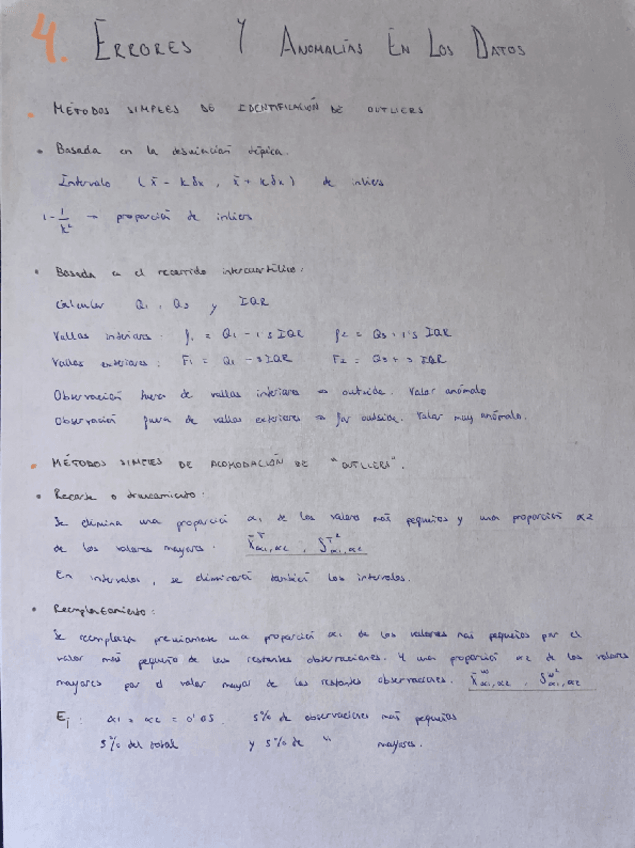 4. ERRORES Y ANOMALÍAS EN LOS DATOS
• MÉTODOS SIMPLES DE IDENTIFICACIÓN DE OUTLIERS
• Basada en la desviación típica.
Intervalo (x̄ - kSx , x̄ + kSx) de inliers
1 - 1/k² → proporción de inliers
• Basada en el recorrido intercuartílico:
Calcular Q1, Q3 y IQR
Vallas interiores: f1 = Q1 - 1'5 IQR f2 = Q3 + 1'5 IQR
Vallas exteriores: F1 = Q1 - 3 IQR F2 = Q3 + 3 IQR
Observación fuera de vallas interiores → outside. Valor anómalo
Observación fuera de vallas exteriores → far outside. Valor muy anómalo.
• MÉTODOS SIMPLES DE ACOMODACIÓN DE "OUTLIERS".
• Recorte o truncamiento:
Se elimina una proporción α1 de los valores más pequeños y una proporción α2
de los valores mayores. X̄ᵀα1,α2 , Sᵀ²α1,α2
En intervalos, se eliminará también los intervalos.
• Reemplazamiento:
Se reemplaza previamente una proporción α1 de los valores más pequeños por el
valor más pequeño de las restantes observaciones. Y una proporción α2 de los valores
mayores por el valor mayor de las restantes observaciones. X̄ʷα1,α2 , Sʷ²α1,α2
Ej: α1 = α2 = 0'05. 5% de observaciones más pequeñas
5% del total y 5% de " mayores.